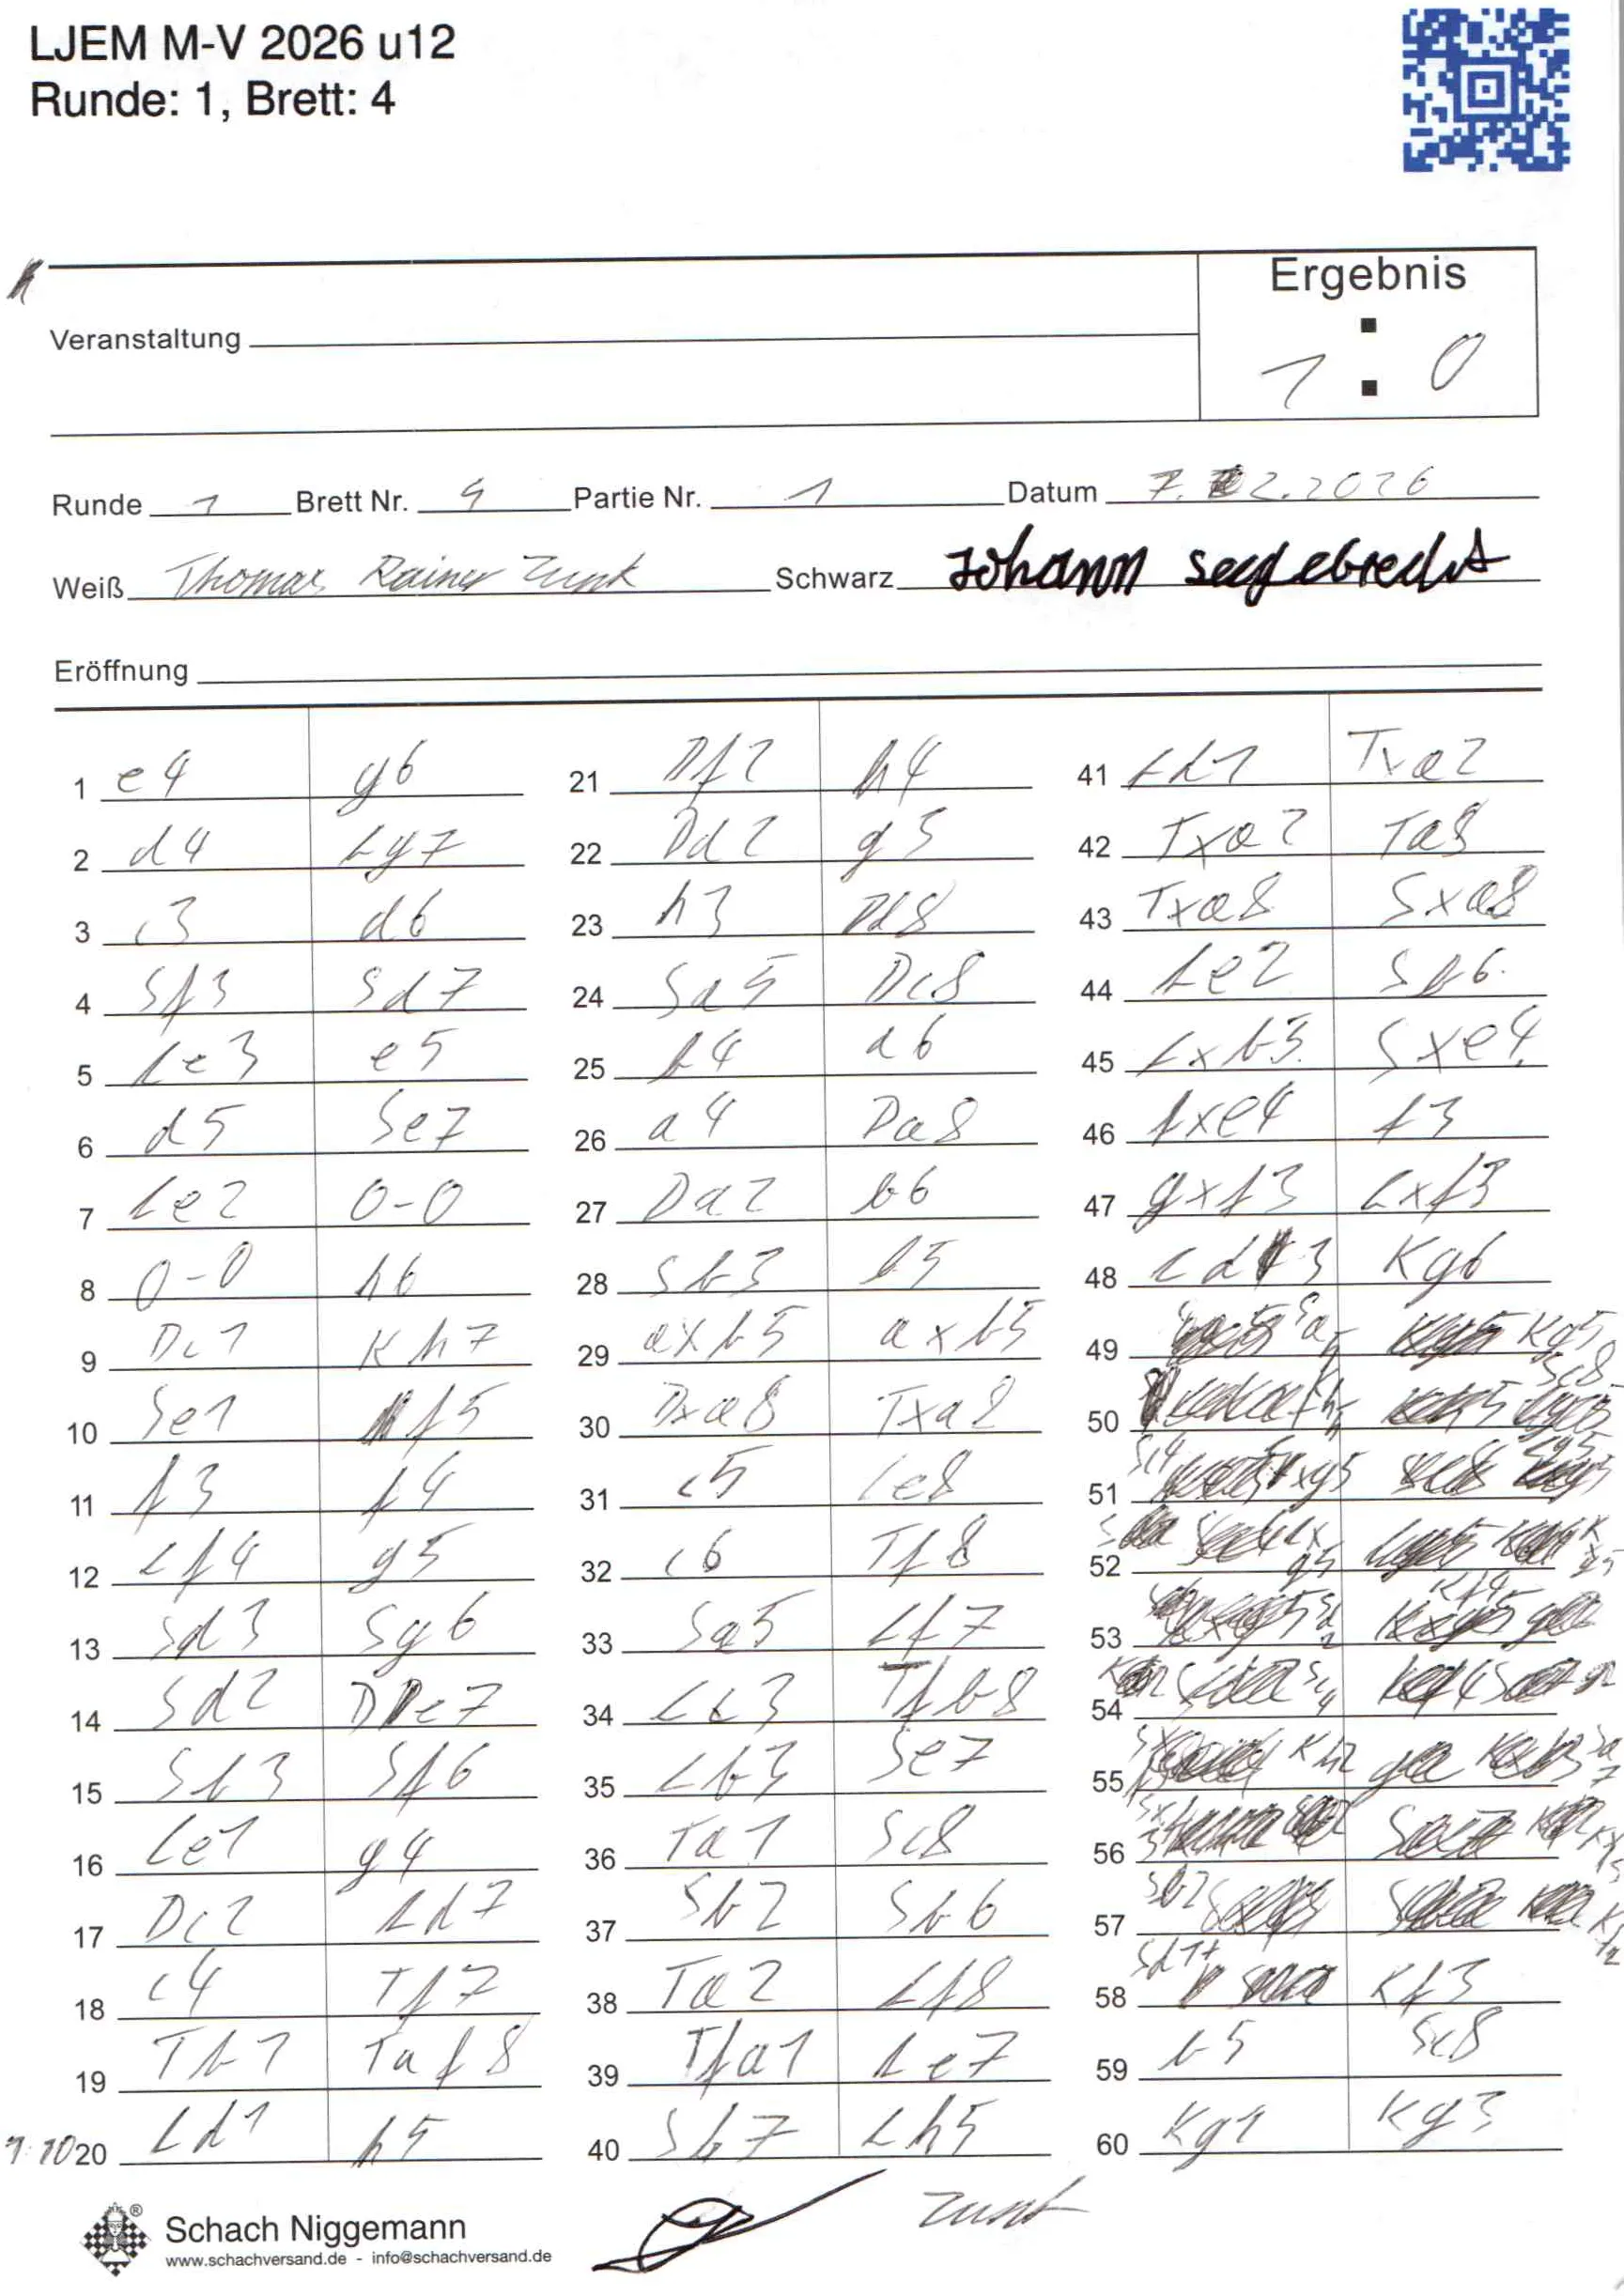 LJEM M-V 2026 u12
Runde: 1, Brett: 4
Ergebnis
Veranstaltung
1 : 0
Runde 1 Brett Nr. 4 Partie Nr. 1 Datum 7. 2.2026
Weiß Thomas Rainer Zunk Schwarz Johann seegebrecht
Eröffnung
1 e4 g6
2 d4 Lg7
3 c3 d6
4 Sf3 Sd7
5 Le3 e5
6 d5 Se7
7 Le2 0-0
8 0-0 h6
9 Dc1 Kh7
10 Se1 f5
11 f3 f4
12 Lf4 g5
13 Sd3 Sg6
14 Sd2 De7
15 Sb3 Sf6
16 Le1 g4
17 Dc2 Ld7
18 c4 Tf7
19 Tb1 Taf8
20 Ld1 h5
21 Df2 h4
22 Dd2 g3
23 h3 Dd8
24 Sa5 Dc8
25 b4 a6
26 a4 Da8
27 Da2 b6
28 Sb3 b5
29 axb5 axb5
30 Dxa8 Txa8
31 c5 Le8
32 c6 Tf8
33 Sa5 Lf7
34 Lc3 Tfb8
35 Lb3 Se7
36 Ta1 Sc8
37 Sb2 Sb6
38 Ta2 Lf8
39 Tfa1 Le7
40 Sb7 Lh5
41 Ld1 Txa2
42 Txa2 Ta8
43 Txa8 Sxa8
44 Le2 Sb6.
45 Lxb5. Sxe4.
46 fxe4 f3
47 gxf3 Lxf3
48 Ld3 Kg6
49 Sa5 Kg5
50 Sc8
51
52
53 Kf4
54 Sc4
55 Kh2
56
57 Sb2
58 Sd1+ Kf3
59 b5 Sc8
60 Kg1 Kg3
Zunk
Schach Niggemann
www.schachversand.de - info@schachversand.de